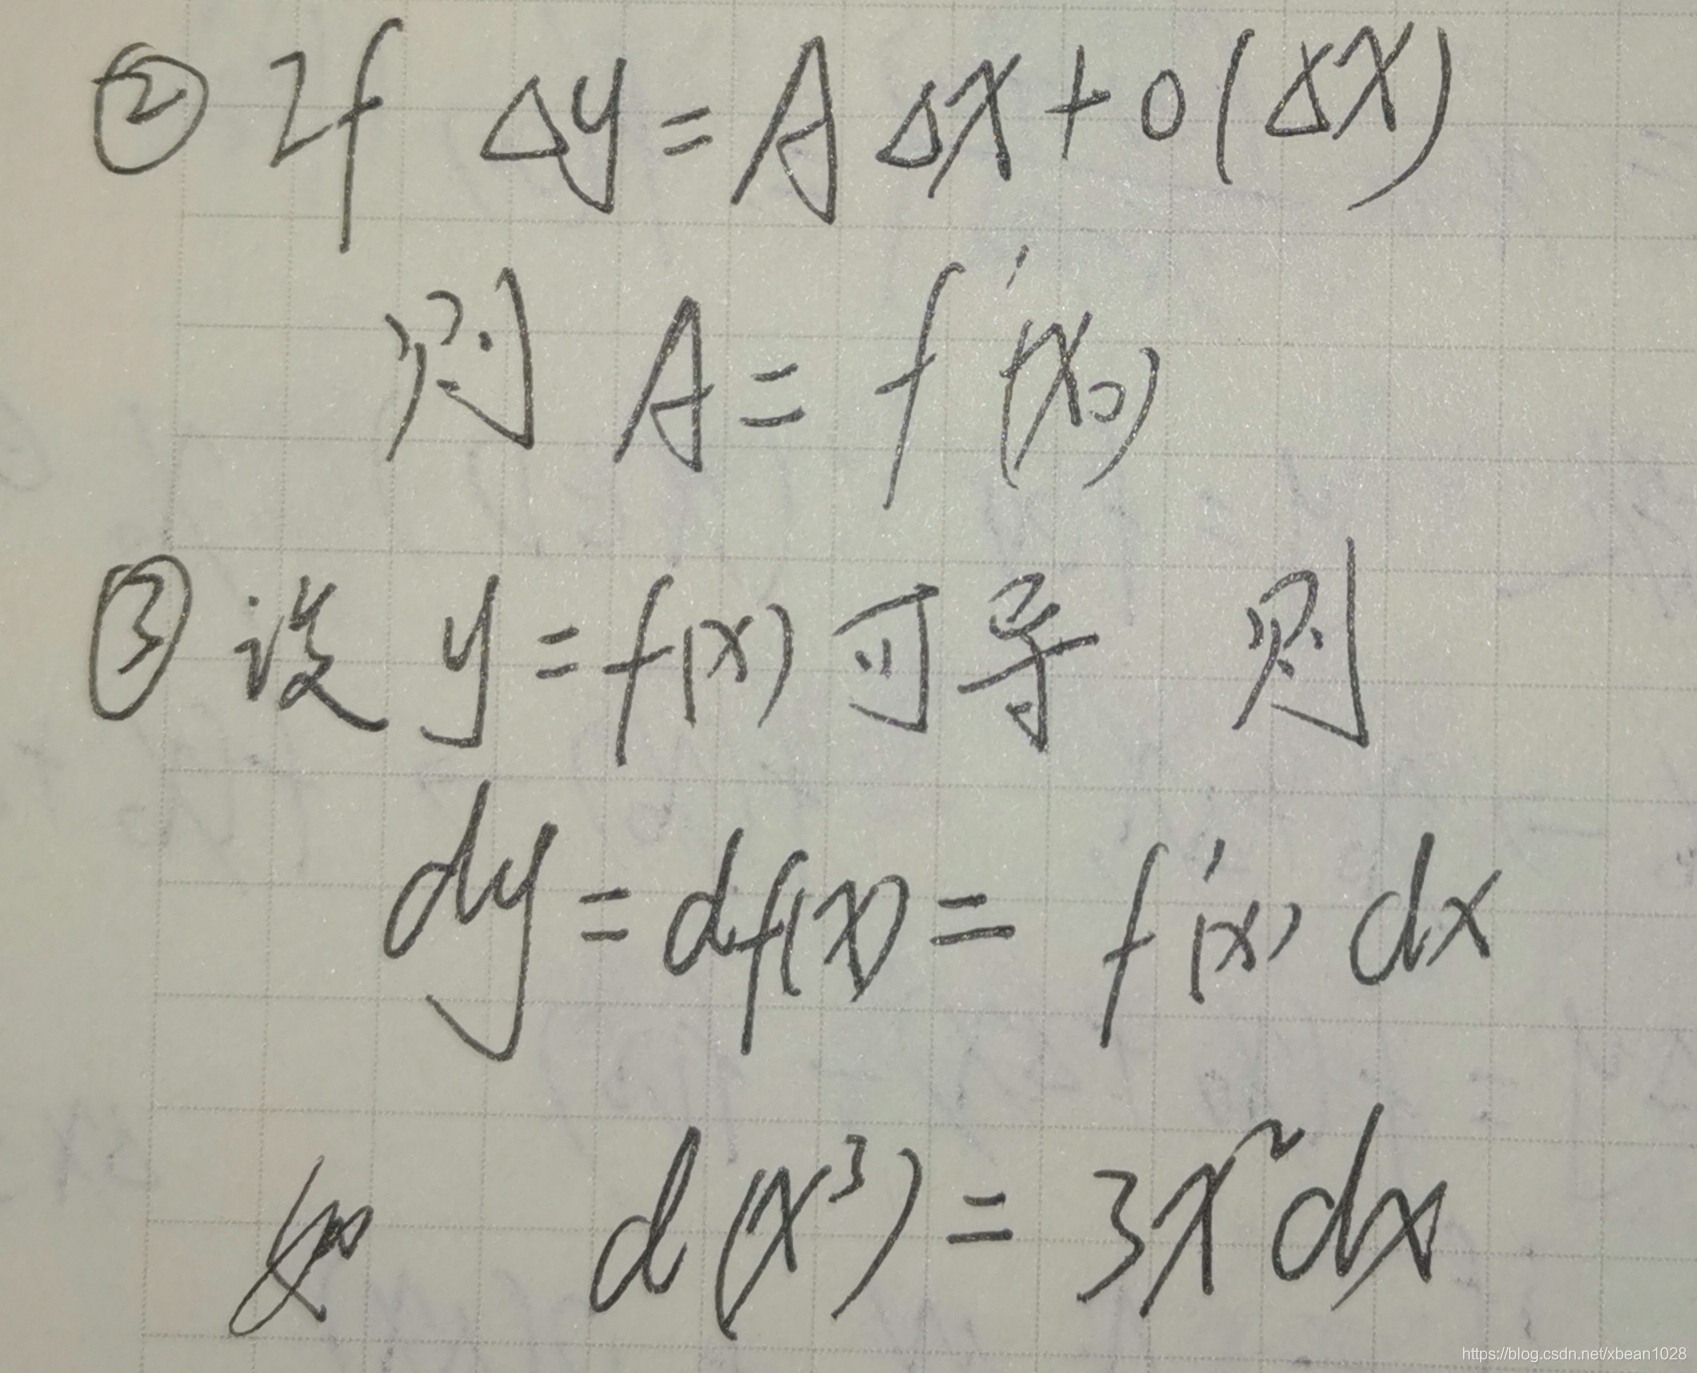 ② If Δy = AΔx + o(Δx)
则 A = f'(x₀)
③ 设 y = f(x) 可导 则
dy = df(x) = f'(x) dx
如 d(x³) = 3x²dx
https://blog.csdn.net/xbean1028